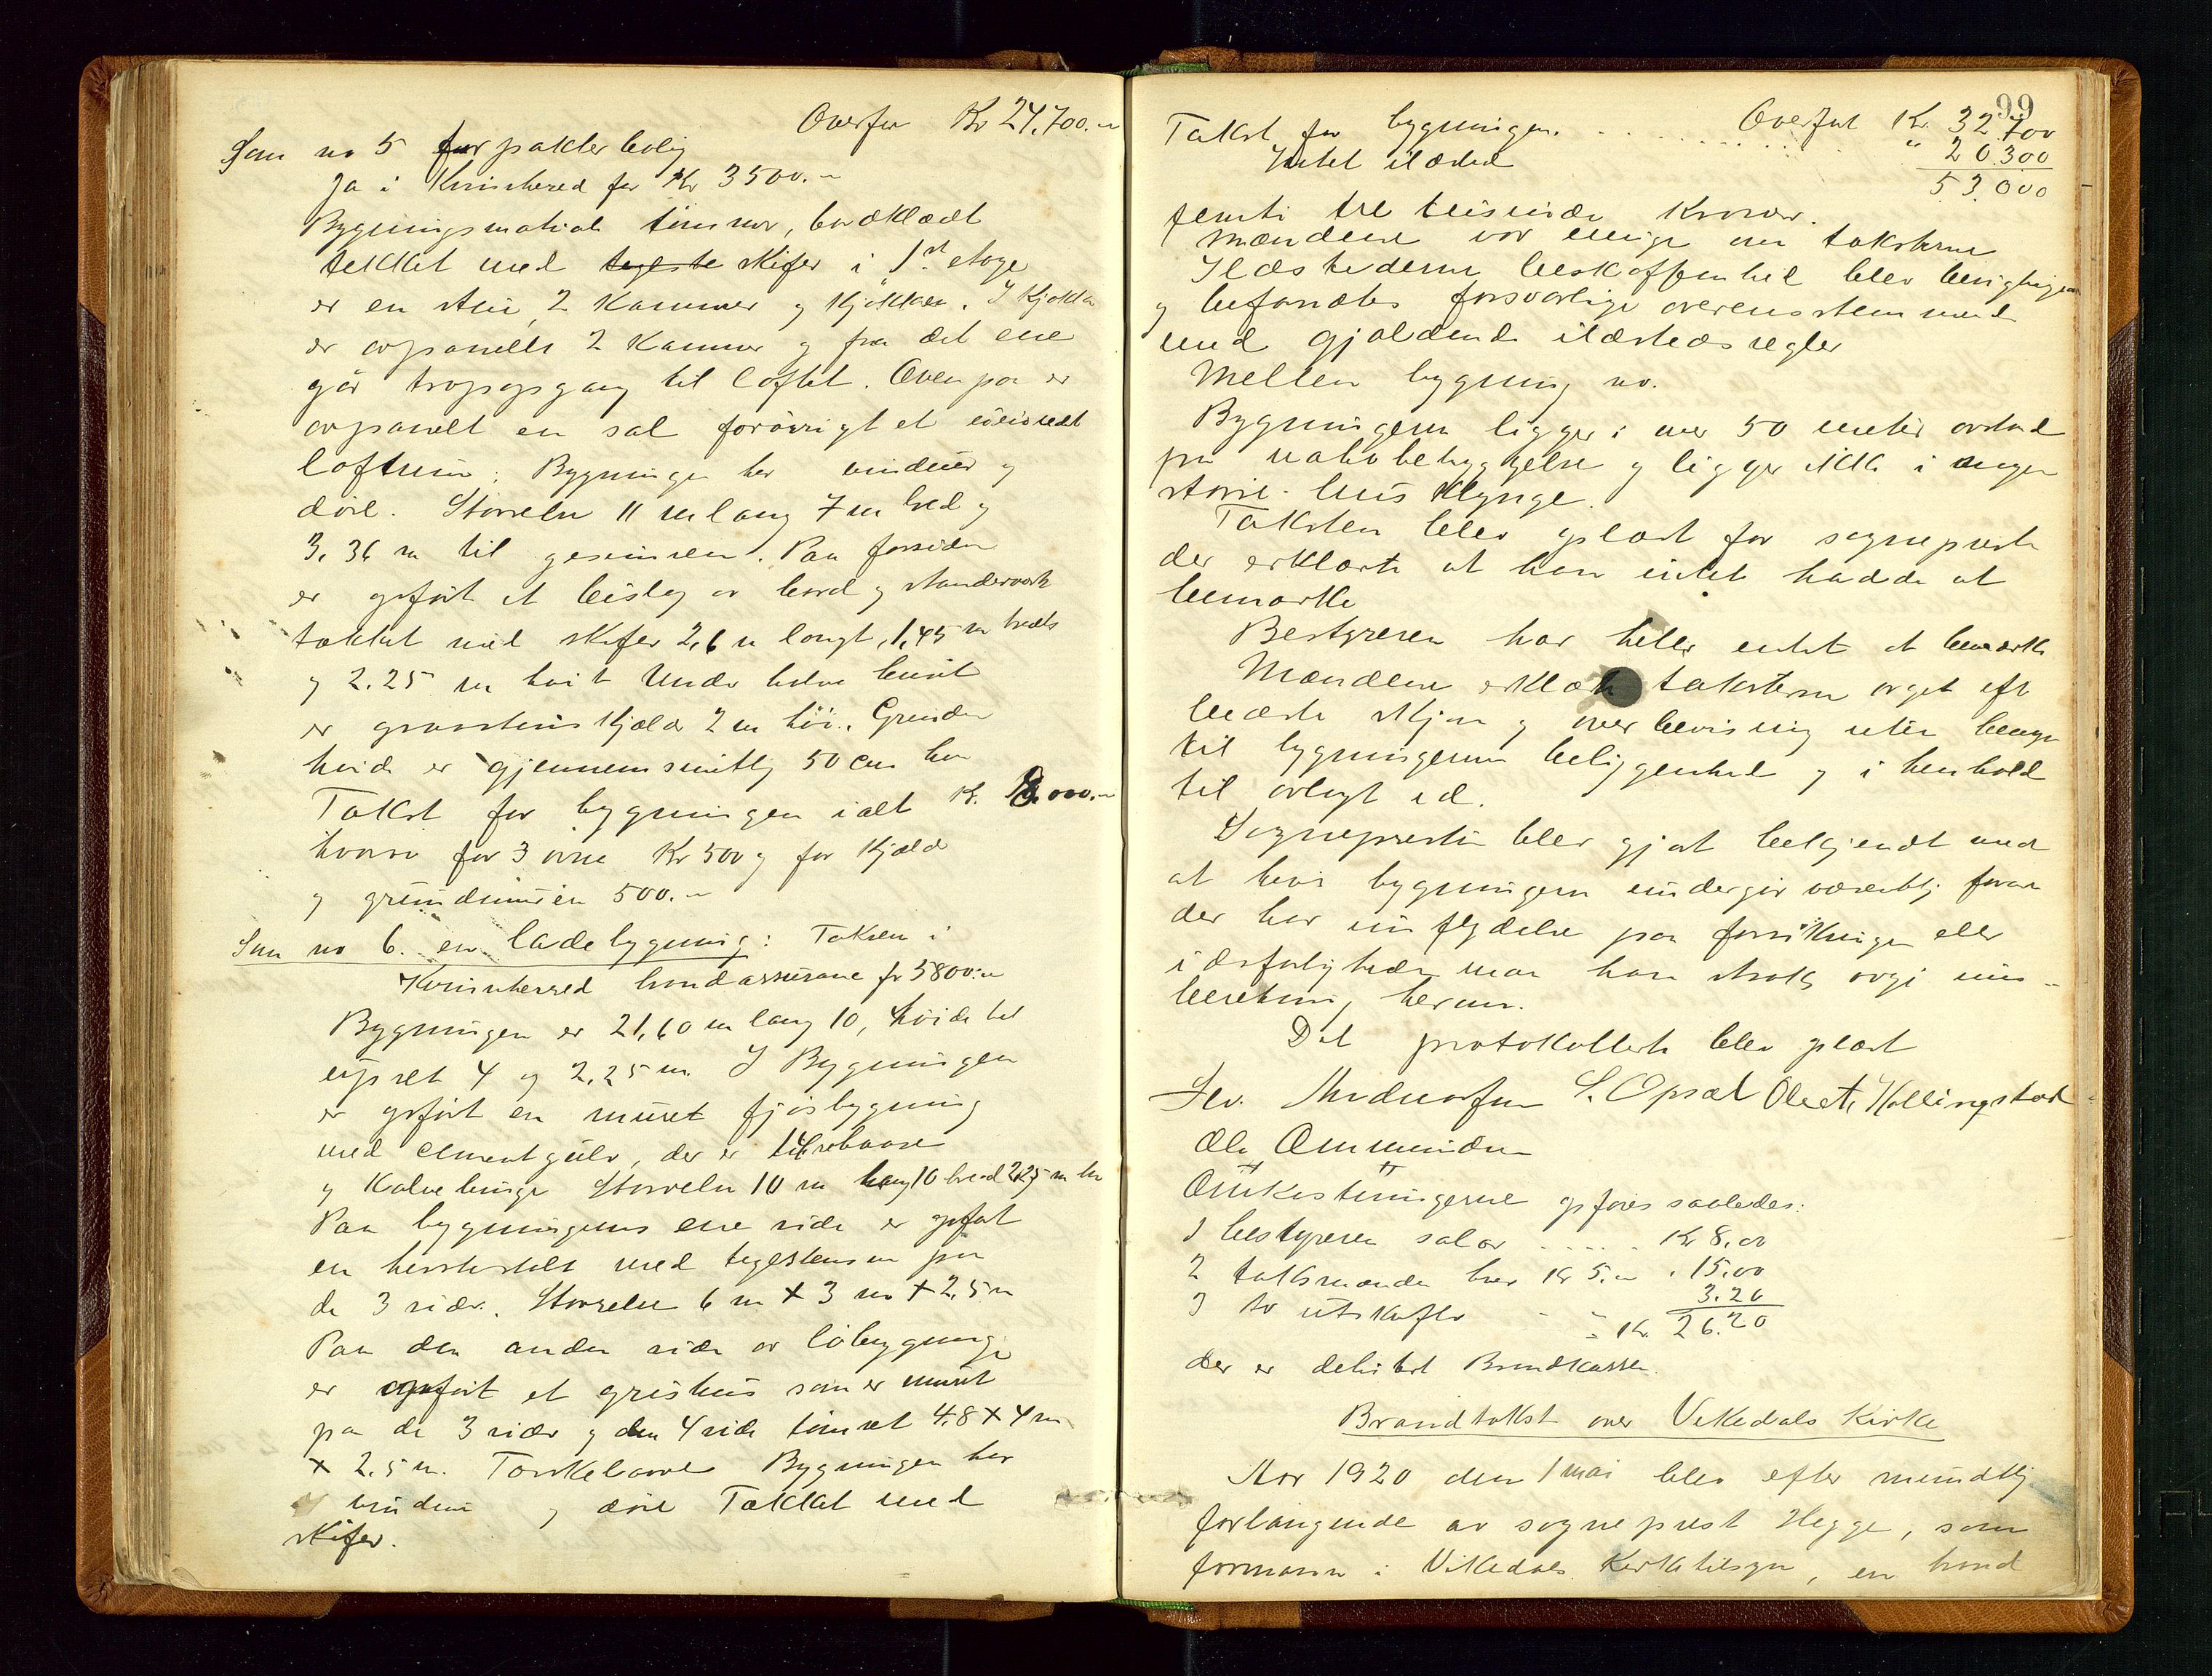 Overfør Kr 24,700.-
Som no 5 forpakterbolig
Ja i Kvinnherred for Kr 3500.-
Bygningsmateriale tømmer, bordklædt
tekket med tegelste skifer i 1st etage
er en stue, 2 kammer og kjøkken. I kjøkk
er avpanelt 2 kammer og fra det ene
går trapopgang til loftet. Ovenpaa er
avpanelt en sal forøvrigt et uinredt
loftrum. Bygninge har vinduer og
døre. Størrelse 11 m lang 7 m bred og
3,36 m til gesimsen. Paa forsiden
er opført et bislag av bord og standerverk
tækket med skifer 2,6 m langt, 1,45 m bredt
og 2.25 m høit Under halve huset
er graastens kjæld 2 m høi. Grunden
høide er gjennemsnitlig 50 cm høi
Takst for bygningen ialt Kr. 8.000.-
hvorav for 3 ovne Kr 500 og for kjæld
og grundmuren 500.-
Som no 6. en ladebygning: Taksen i
Kvinnherred brandassurance for 5800.-
Bygningen er 21,60 m lang 10, høide til
4 og 2,25 m. I Bygningen
er opført en muret fjøsbygning
med cementgulv, der er 14
og kalvebinge Størrelse 10 m lang 10 bred 2,25 m høi
Paa bygningens ene side er opført
en hestestald med tegelstensmur paa
de 3 sider. Størrelse 6 m x 3 m x 2,5 m
Paa den anden side av løbygninge
er opført et grishus som er muret
paa de 3 sider og den 4 side tømret 4.8 x 4 m
x 2.5 m. Bygningen har
vinduer og døre Tækket med
skifer.
99
Overført Kr. 32 700
Takst for bygningen. . . . . . . . " 20.300
Intet ildsted
53.000
femti tre tusinde Kroner.
Mændene var enige om taksterne
Ildstedernes beskaffenhed blev besigtiget
og befandtes forsvarlige overensstemmend
med gjældende ildstedsregler
Mellem bygning no.
Bygningerne ligger i over 50 meter avstand
fra nabobebyggelse og ligger ikke i nogen
større husklynge.
Taksten blev oplæst for sogneprest
der erklærte at han intet hadde at
bemærke
Bestyreren har heller intet at bemærke
Mændene erklærte taksterne avget efter
bedste skjøn og overbevisning uten hensyn
til bygningernes beliggenhed og i henhold
til avlagt ed.
Sogneprestn blev gjort bekjendt med
at hvis bygningerne undergår væsentlig foran
der har inflydelse paa forsikringen eller
ildsfarligheden maa han straks avgi ind-
beretning herom.
Det protokollerte blev oplæst
S. Opsal Hallingstad
Ole Ommundsen
Omkostningerne opføres saaledes:
1 bestyreren salær . . . . . Kr 8.00
2 takstmænd hver Kr 5.- " 15.00
3 to utskrifter " " 3.20
Kr. 26.20
der er debitert Brandkassen.
Brandtakst over Vikedals Kirke
Aar 1920 den 1 mai blev efter mundtlig
forlangende av sogneprest Hegge, som
formann i Vikedals Kirketilsyn, en brand